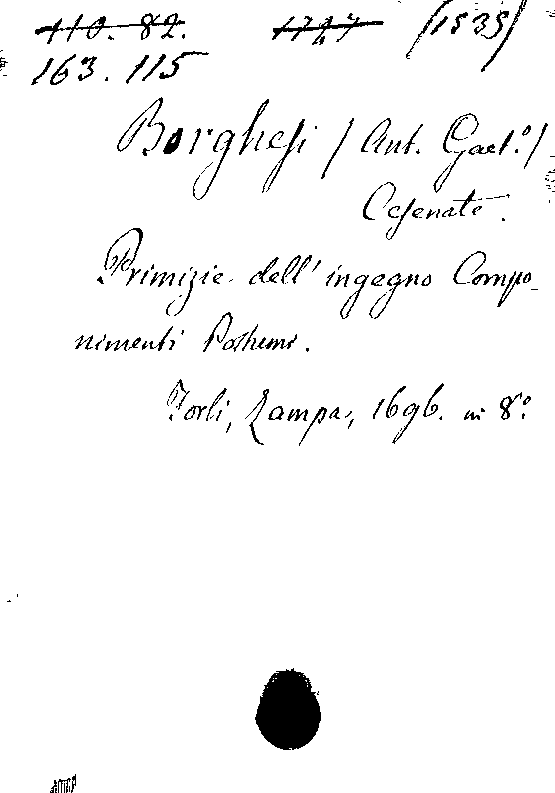 110. 82. 1727 (1535)
163. 115
Borghesi / Ant. Gaet.º /
Cesenate.
Primizie dell' ingegno Compo-
nimenti Postumi.
Forli, Zampa, 1696. in 8º